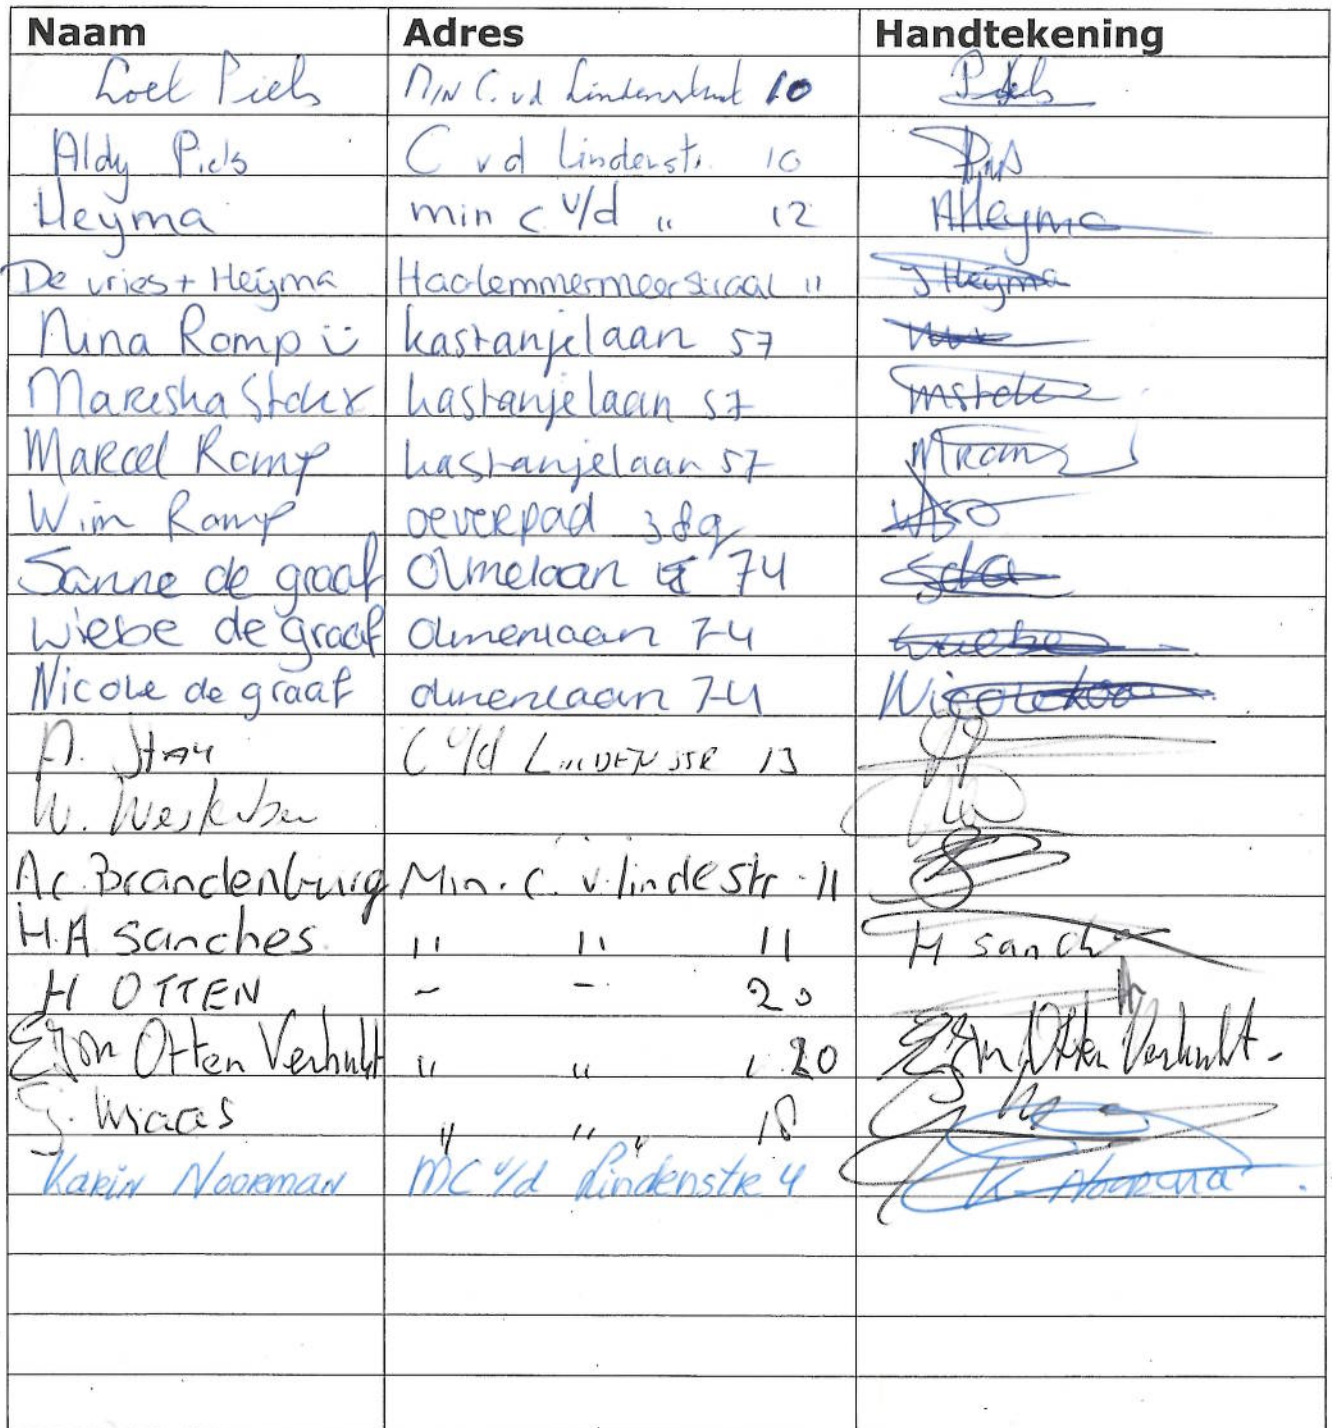 Naam Adres Handtekening
Loet Piels Min C. vd Lindenstraat 10 Piels
Aldy Piels C vd Lindenstr. 10
Heyma min C v/d " 12 AHeyma
De vries + Heijma Haarlemmermeerstraat 11 J Heijma
Nina Romp kastanjelaan 57
Mariska Stoker kastanjelaan 57
Marcel Romp kastanjelaan 57 MRomp
Wim Romp oeverpad 389
Sanne de graaf Olmelaan 74 SdG
Wiebe de graaf Olmenlaan 74 Wiebe
Nicole de graaf olmenlaan 74 Nicole
C v/d LINDENSTR 13
W.
A.C. Brandenburg Min. C. v. lindestr. 11
H.A Sanches " " 11 H Sanch
H OTTEN - - 20
Otten Verhulst " " " 20 Otten Verhulst.
G. Maas " " " 18
Karin Noorman MC v/d Lindenstr 4 K Noorman